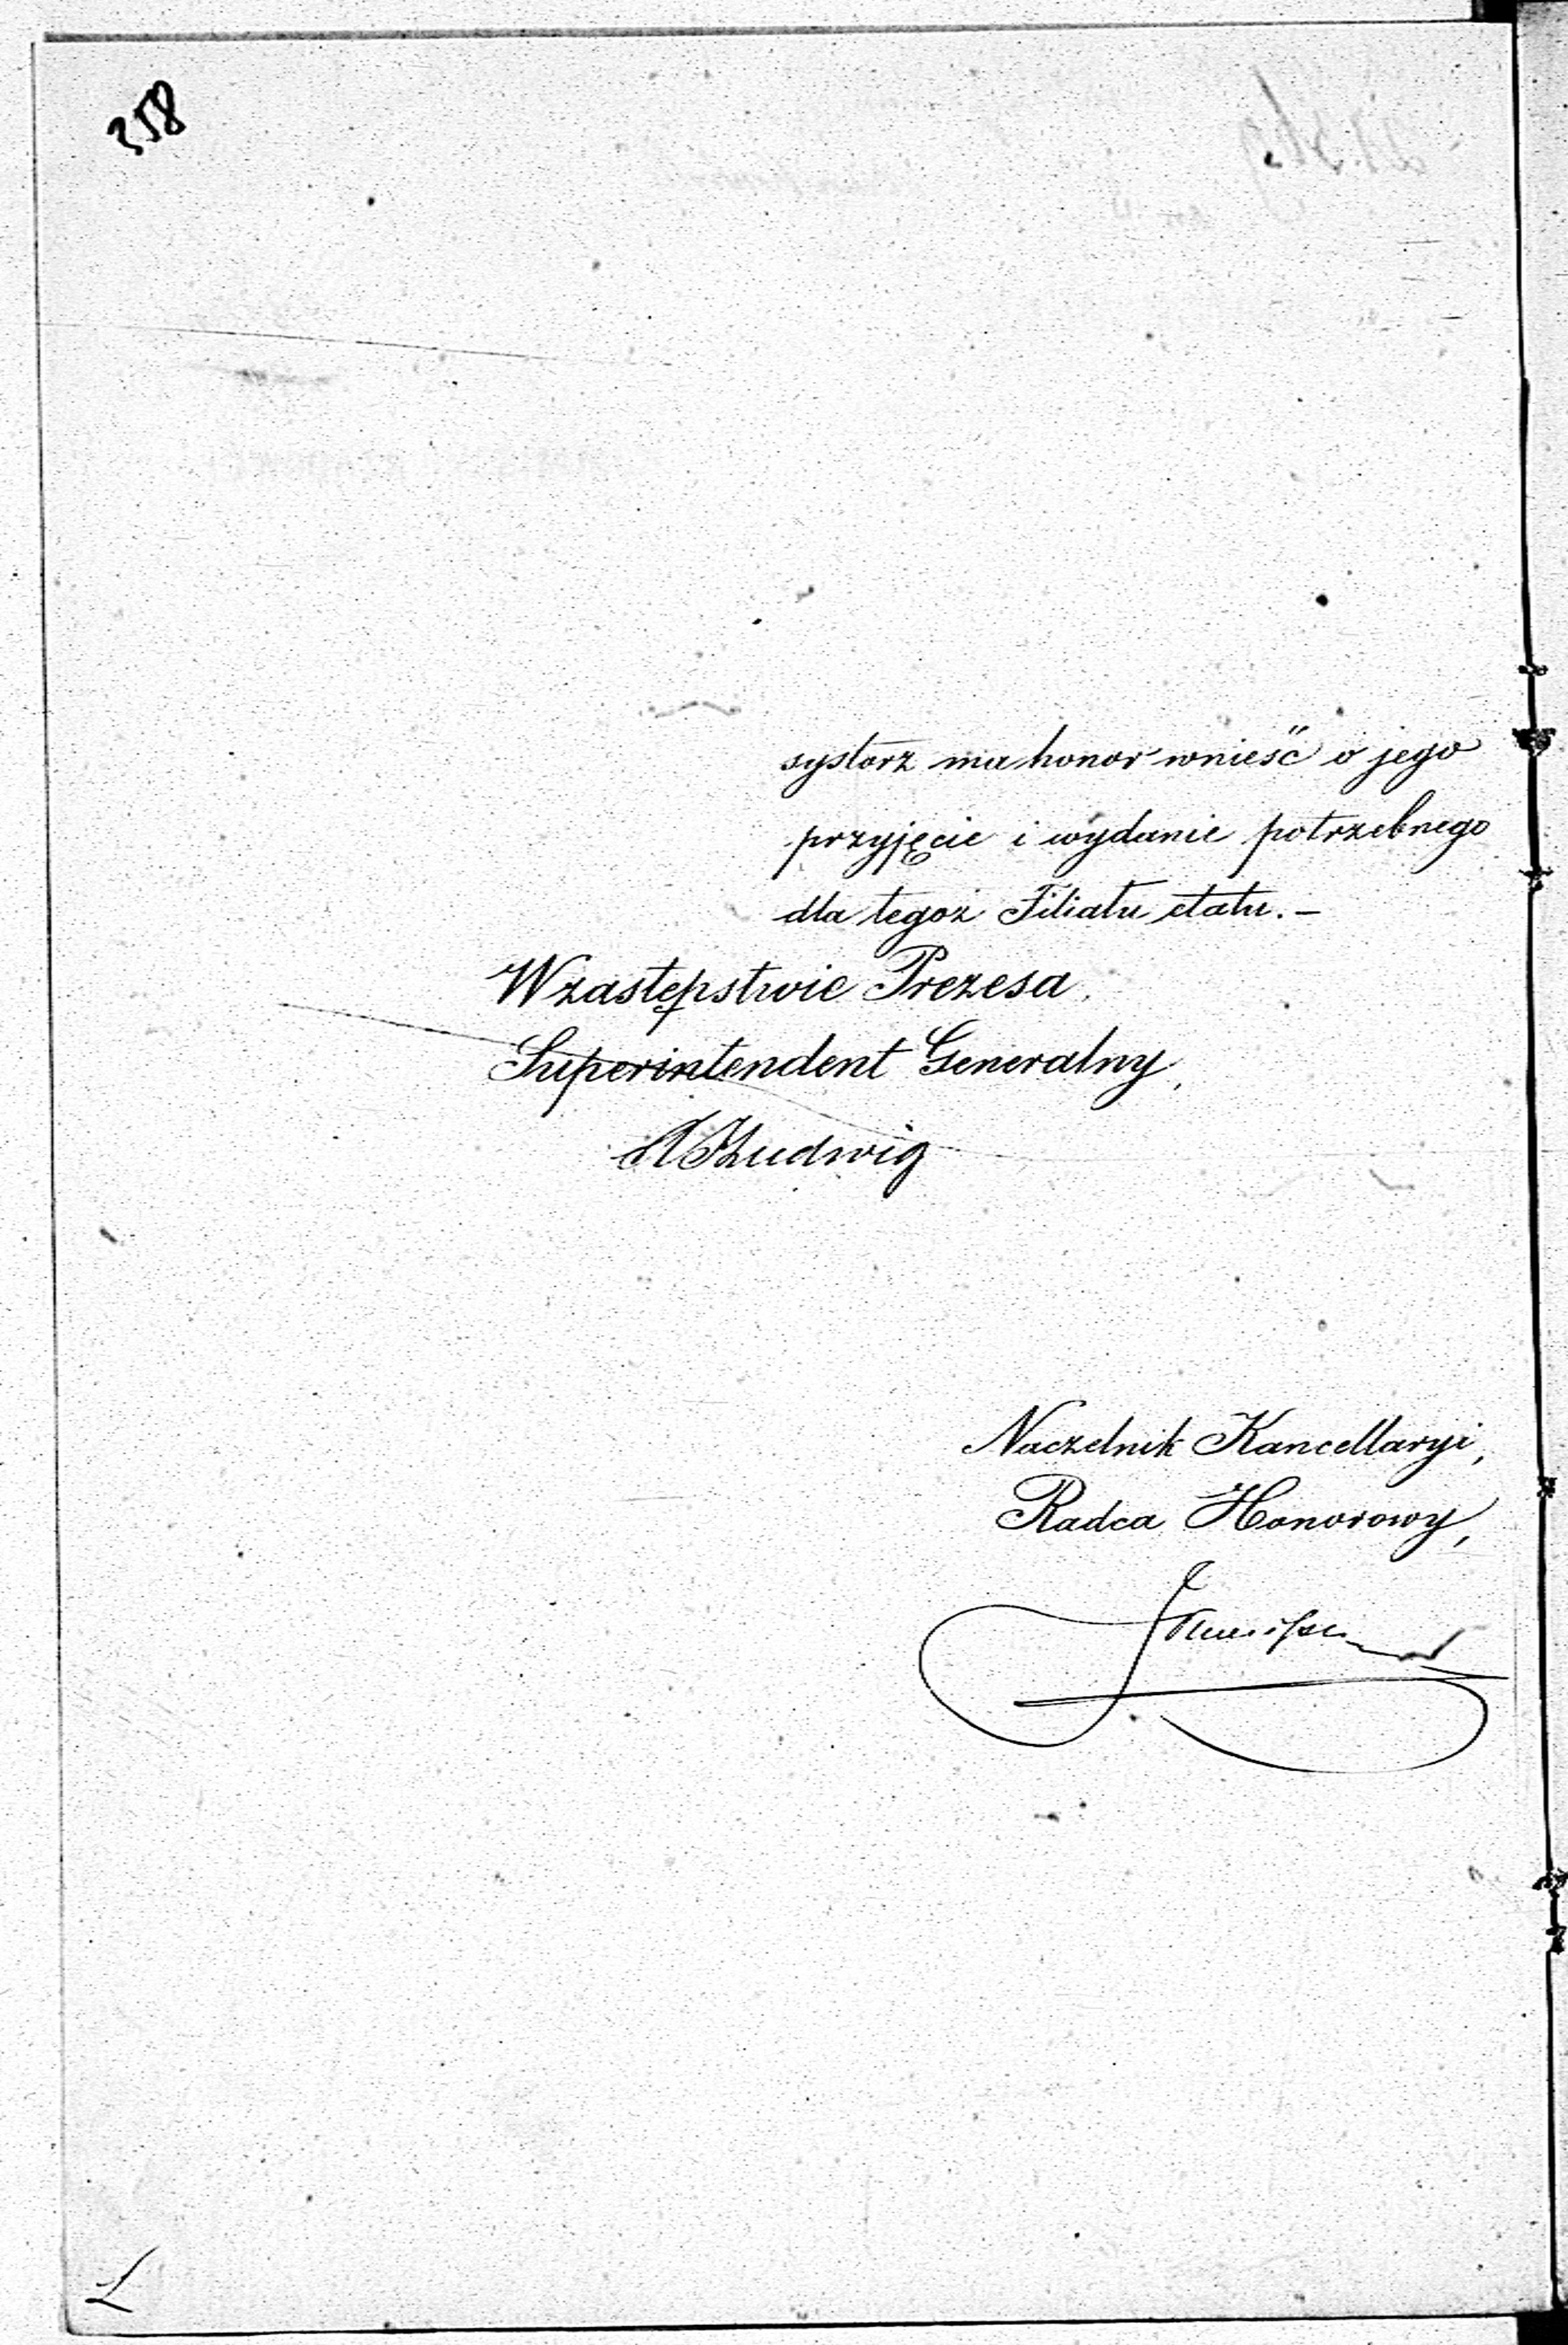 358
systorz ma honor wnieść o jego
przyjęcie i wydanie potrzebnego
dla tegoż Filiału etatu. —
W zastępstwie Prezesa,
Superintendent Generalny,
Ludwig
Naczelnik Kancellaryi,
Radca Honorowy,
L